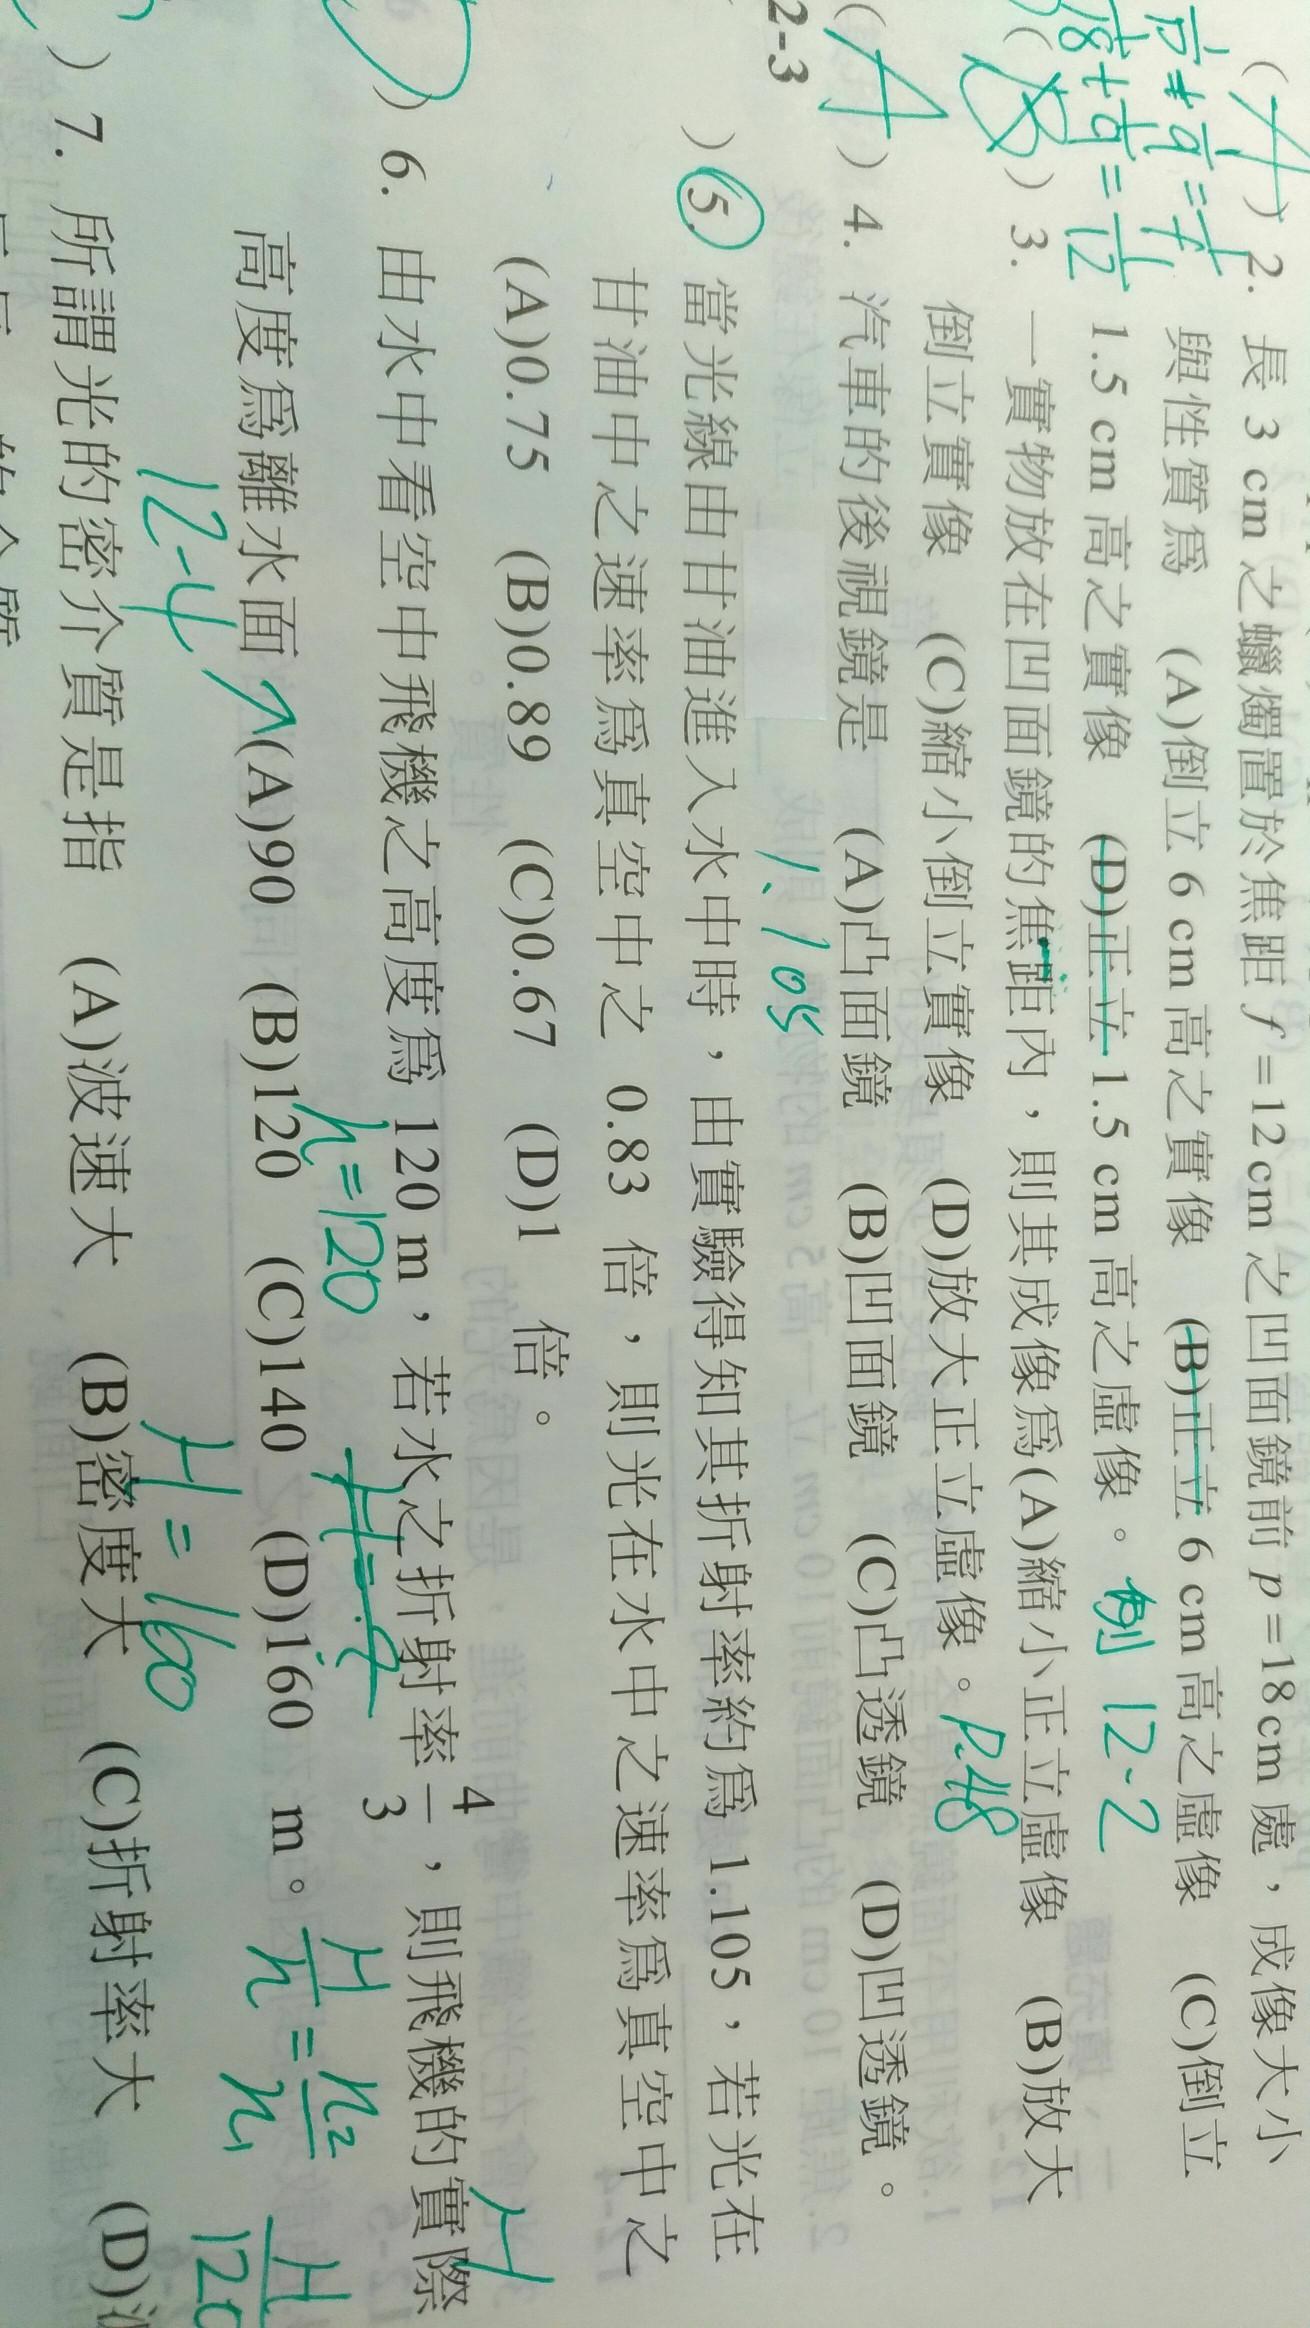 (A)2. 長 3 cm 之蠟燭置於焦距 f =12 cm 之凹面鏡前 p =18 cm 處，成像大小
與性質爲 (A)倒立 6 cm 高之實像 (B)正立 6 cm 高之虛像 (C)倒立
1.5 cm 高之實像 (D)正立 1.5 cm 高之虛像。例 12-2
(B)3. 一實物放在凹面鏡的焦距內，則其成像爲(A)縮小正立虛像 (B)放大
倒立實像 (C)縮小倒立實像 (D)放大正立虛像。P.48
(A)4. 汽車的後視鏡是 (A)凸面鏡 (B)凹面鏡 (C)凸透鏡 (D)凹透鏡。
2-3
1.105
)5. 當光線由甘油進入水中時，由實驗得知其折射率約爲 1.105，若光在
甘油中之速率爲真空中之 0.83 倍，則光在水中之速率爲真空中之
(A)0.75 (B)0.89 (C)0.67 (D)1 倍。
H
)6. 由水中看空中飛機之高度爲 120 m，若水之折射率 4/3，則飛機的實際
h=120
高度爲離水面 (A)90 (B)120 (C)140 (D)160 m。 H/h = n2/n1
12-4 H=160
)7. 所謂光的密介質是指 (A)波速大 (B)密度大 (C)折射率大 (D)